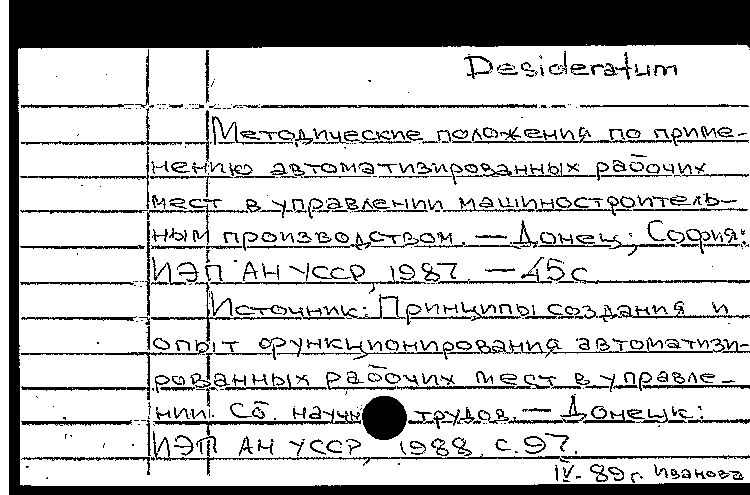 Desideratum
Методические положения по приме-
нению автоматизированных рабочих
мест в управлении машиностроитель-
ным производством. — Донец; София:
ИЭП АН УССР, 1987. — 45с
Источник: Принципы создания и
опыт функционирования автоматизи-
рованных рабочих мест в управле-
нии. Сб. научн трудов. — Донецк:
ИЭП АН УССР, 1988. с. 97.
IV- 89г. Иванова